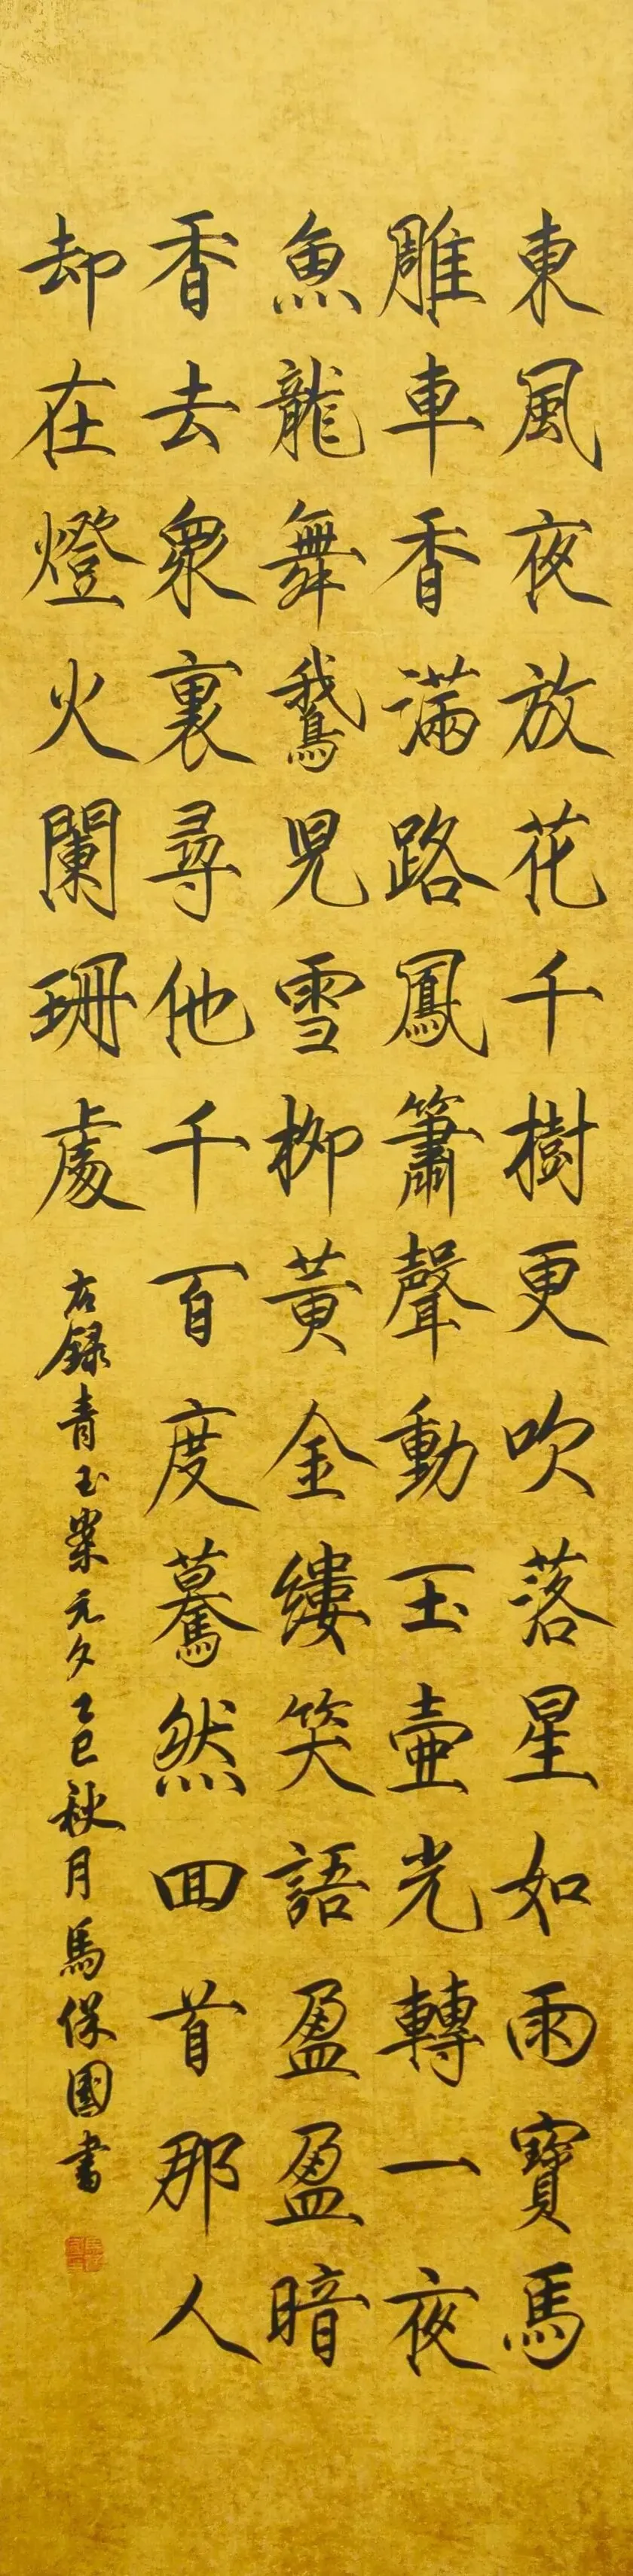 東風夜放花千樹更吹落星如雨寶馬
雕車香滿路鳳簫聲動玉壺光轉一夜
魚龍舞鵝兒雪柳黃金縷笑語盈盈暗
香去衆裏尋他千百度驀然回首那人
却在燈火闌珊處
右録青玉案元夕乙巳秋月馬保國書